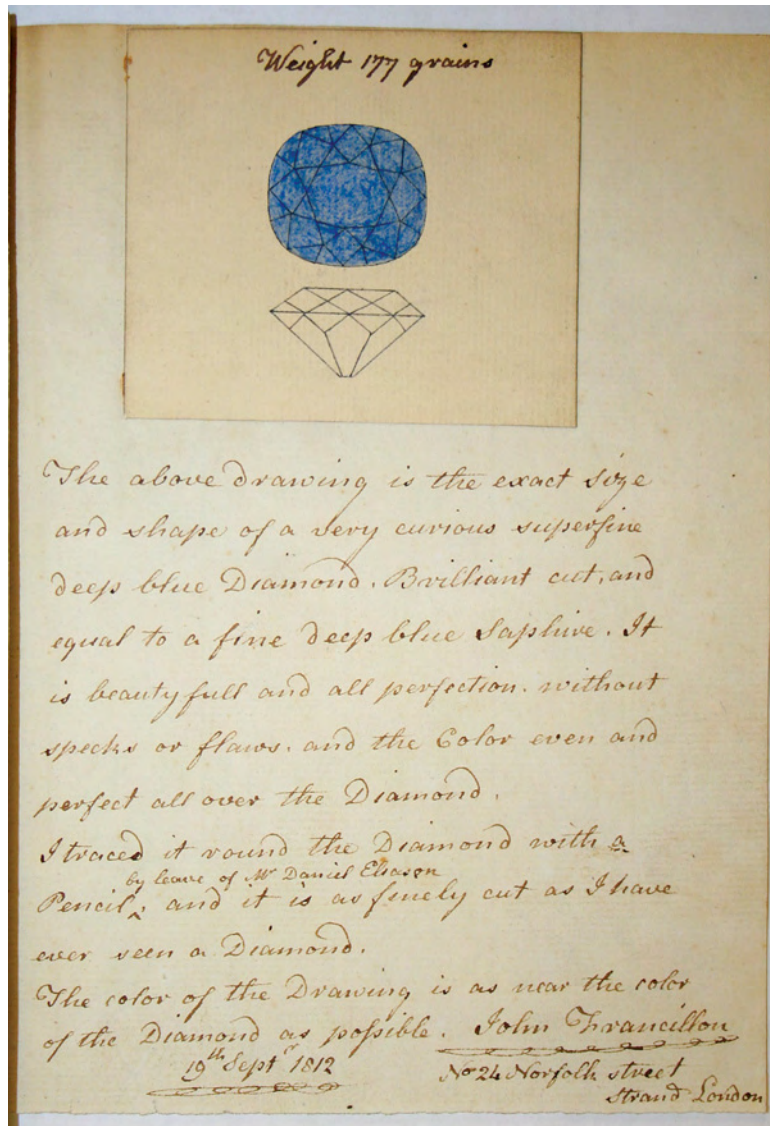 Weight 177 grains
The above drawing is the exact size
and shape of a very curious superfine
deep blue Diamond. Brilliant cut, and
equal to a fine deep blue Saphire. It
is beautyfull and all perfection. without
specks or flaws. and the Color even and
perfect all over the Diamond.
I traced it round the Diamond with a
by leave of Mr Daniel Eliason
Pencil, ‸ and it is as finely cut as I have
ever seen a Diamond.
The color of the Drawing is as near the color
of the Diamond as poſsible. John Francillon
19th Septr 1812
No 24 Norfolk street
Strand London